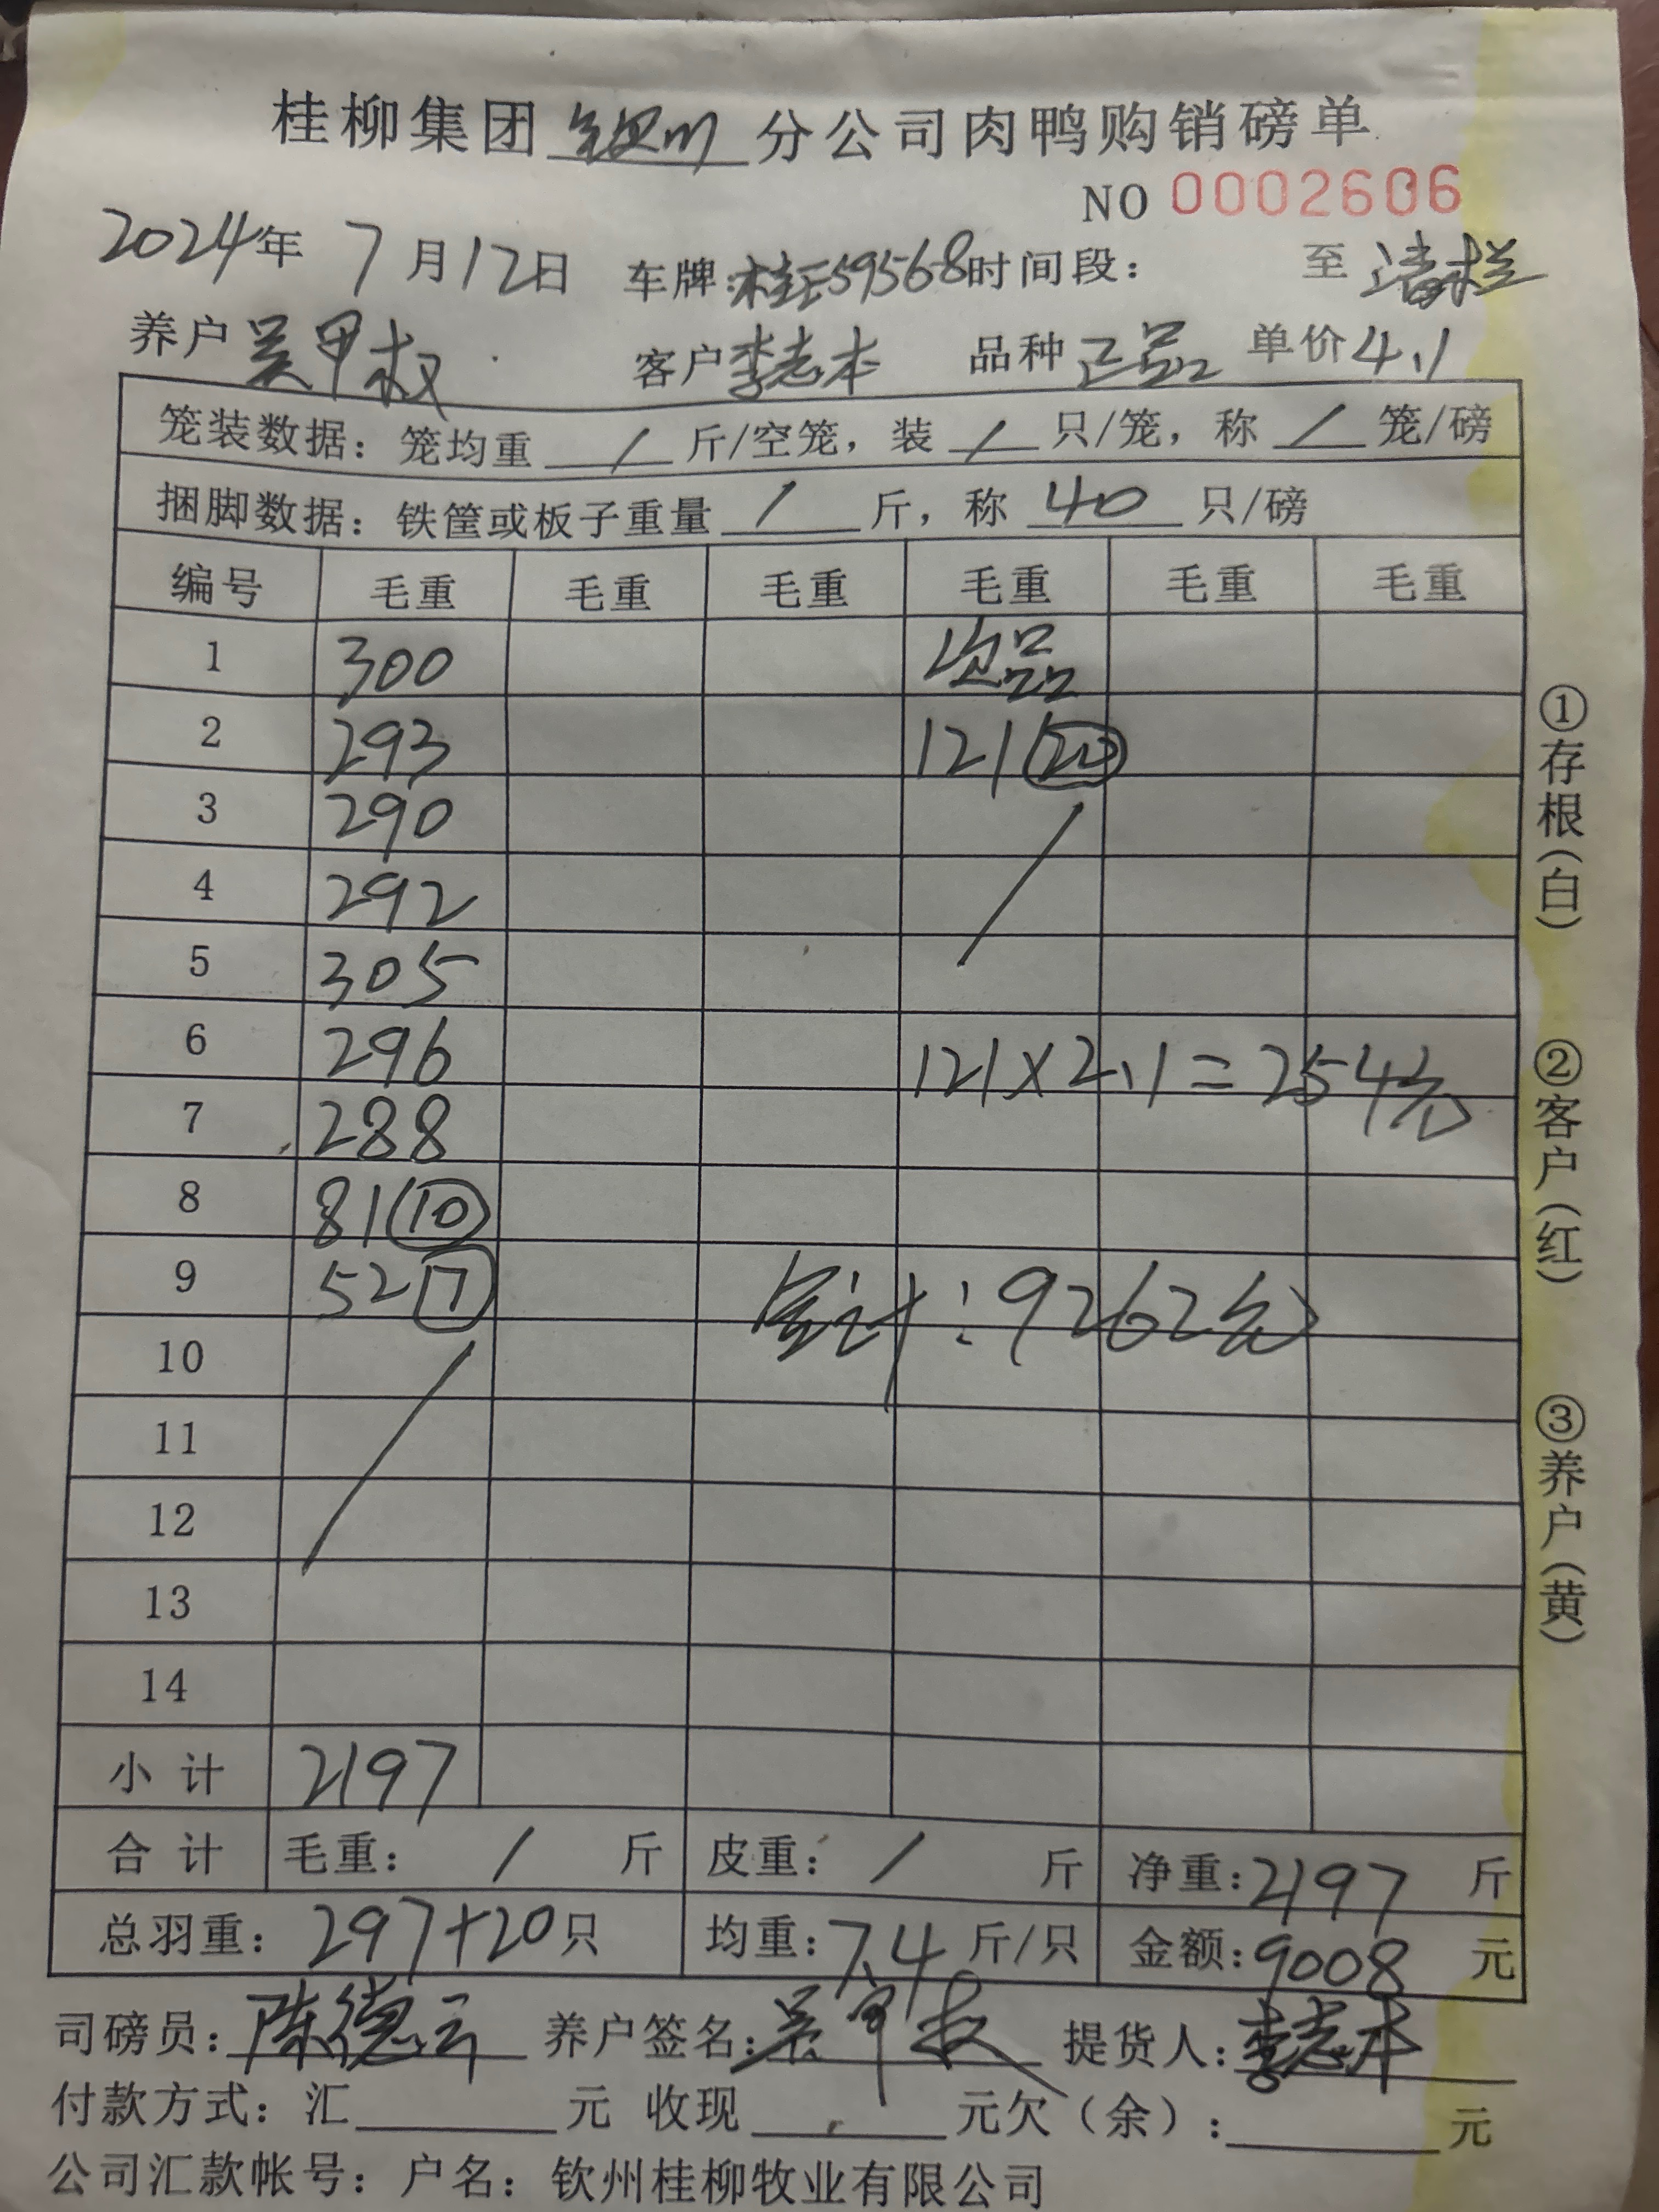 桂柳集团 钦州 分公司肉鸭购销磅单
NO 0002606
2024年 7月12日 车牌:桂 59568 时间段: 至 清栏
养户 吴甲权 客户 李志本 品种 正品 单价 4.1
笼装数据: 笼均重 / 斤/空笼, 装 / 只/笼, 称 / 笼/磅
捆脚数据: 铁筐或板子重量 / 斤, 称 40 只/磅
编号 毛重 毛重 毛重 毛重 毛重 毛重
1 300 次品
2 293 121 (20)
3 290
4 292
5 305
6 296 121×2.1=254元
7 288
8 81 (10)
9 52 7 合计:9262元
10
11
12
13
14
小计 2197
合计 毛重: / 斤 皮重: / 斤 净重:2197 斤
总羽重: 297+20只 均重:7.4 斤/只 金额:9008 元
司磅员:陈德云 养户签名:吴甲权 提货人:李志本
付款方式: 汇 元 收现 元欠(余): 元
公司汇款帐号: 户名: 钦州桂柳牧业有限公司
①存根(白)
②客户(红)
③养户(黄)